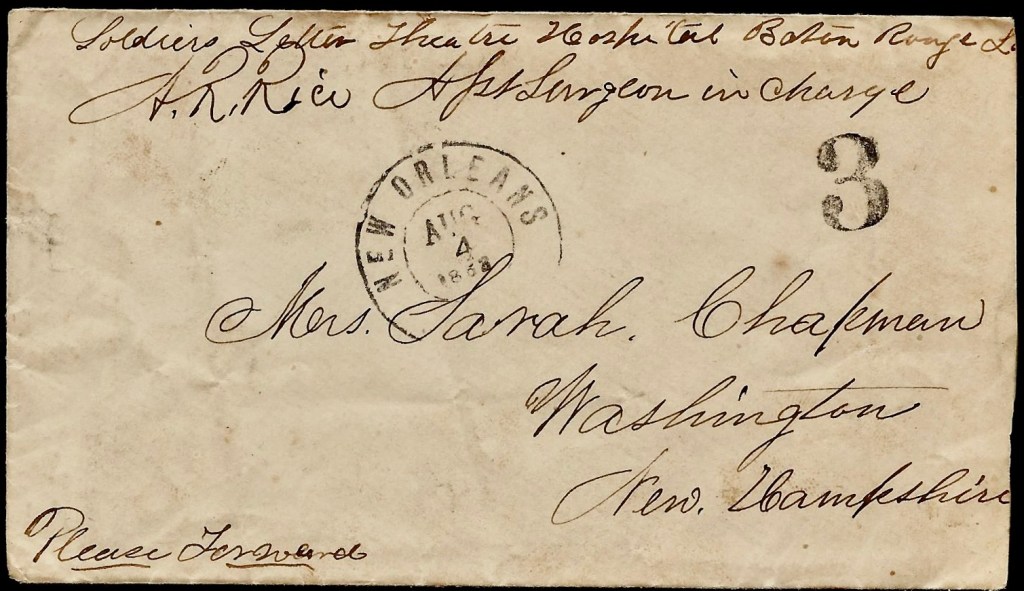 Soldiers Letter Theatre Hospital Baton Rouge La
A. R. Rice Asst Surgeon in charge
3
NEW ORLEANS
AUG
4
1863
Mrs. Sarah. Chapman
Washington
New. Hampshire
Please Forward